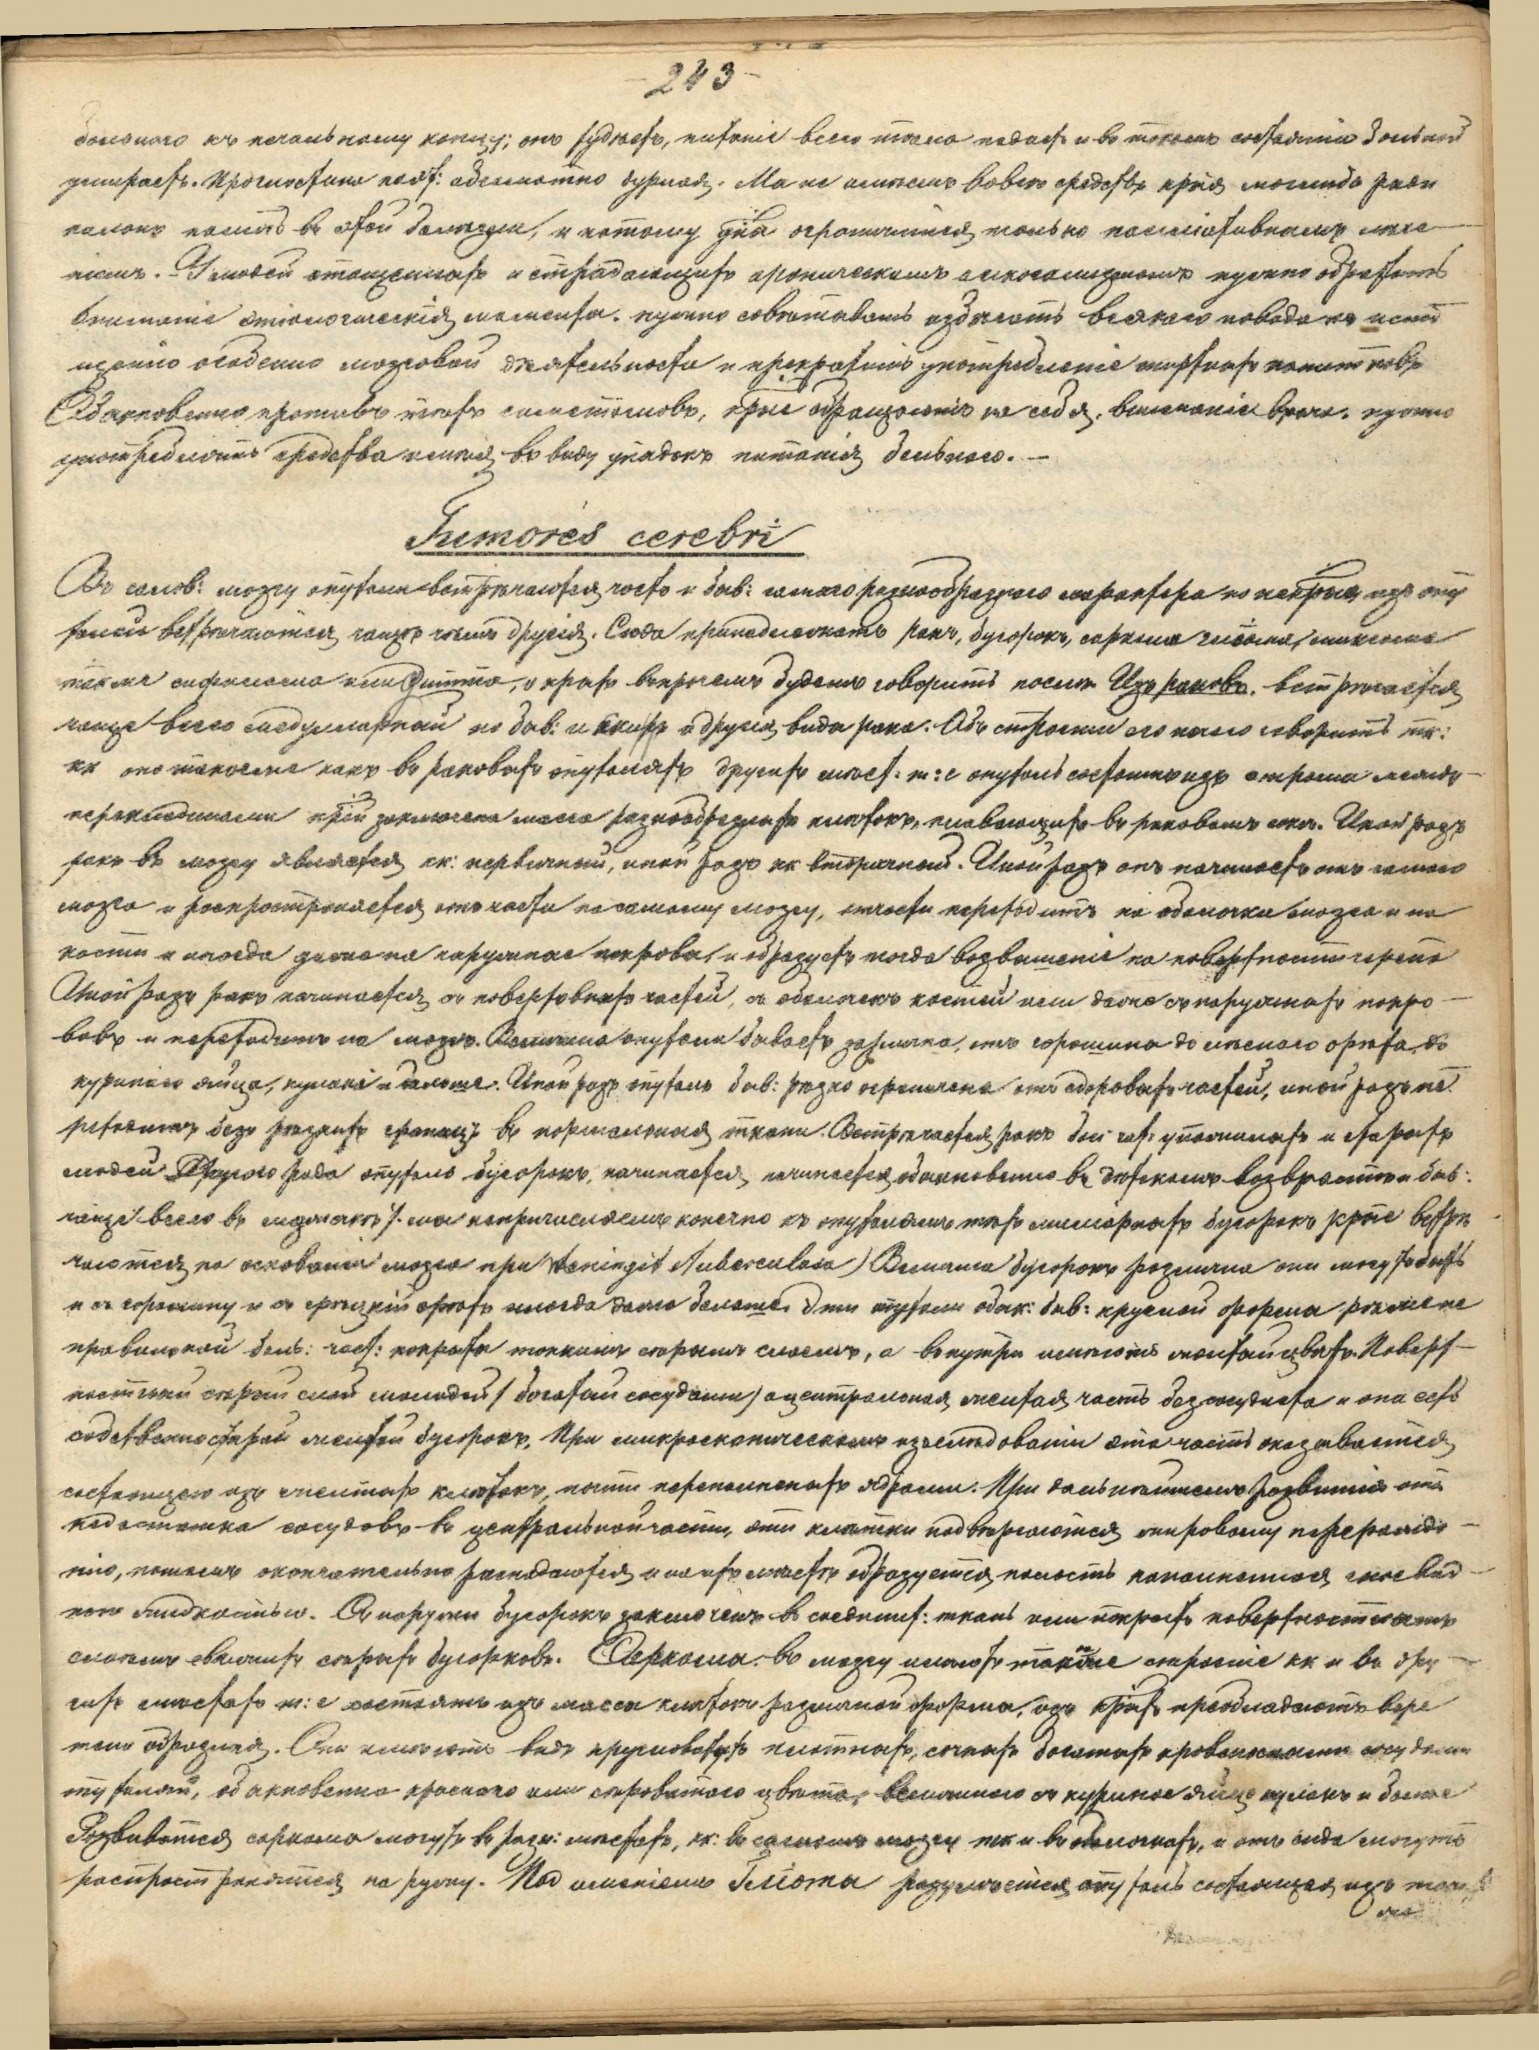 - 243 -
больнаго къ печальному концу; онъ худѣетъ, питаніе всего тѣла падаетъ и въ такомъ состояніи больной
умираетъ. Прогностика поэт: абсолютно дурная. Мы не имѣемъ вовсе средствъ крыя могли бы ради
кально помочь въ этой болѣзни, и потому дѣло ограничится только палліативнымъ лече
ніемъ. - У людей истощенныхъ и страдающихъ хроническимъ алкоголизмомъ нужно обратить
вниманіе этіологическія моменты. нужно совѣтовать избѣгать всякаго повода къ исто
щенію особенно мозговой дѣятельности и прекратить употребленіе спиртныхъ напитковъ
Обыкновенно противъ тѣхъ симптомовъ, крые обращаютъ на себя вниманіе врача. нужно
употреблять средства имѣя въ виду упадокъ питанія больного. -
Tumores cerebri
Въ голов: мозгу опухоли встрѣчаются часто и быв: самаго разнообразнаго характера но некрыя изъ опу
холей встрѣчаются чаще чѣмъ другія. Сюда принадлежатъ ракъ, бугорокъ, саркома глiома, миксома
также сифилома или Gumma, о крыхъ впрочемъ будемъ говорить послѣ. Изъ раковъ встрѣчается
чаще всего медуллярный но быв: и скиръ и другіе виды рака. Объ строеніи его нечего говорить тк:
кк оно такое же какъ въ раковыхъ опухоляхъ другихъ мѣст: т: е опухоль состоитъ изъ стромы между
перекладинами крой заключена масса разнообразныхъ клѣтокъ, плавающихъ въ раковомъ соке. Иной разъ
ракъ въ мозгу является кк: первичный, иной разъ кк вторичный. Иной разъ онъ начинаетъ отъ самаго
мозга и распространяется отчасти по самому мозгу, отчасти переходитъ на оболочки мозга и на
кости и иногда даже на наружные покровы, и образуетъ тогда возвышеніе на поверхности черепа
Иной разъ ракъ начинается съ поверхностныхъ частей, съ оболочекъ костей или даже съ наружныхъ покро
вовъ и переходитъ на мозгъ. Величина опухоли бываетъ различна, отъ горошины до лѣснаго орѣха, до
куринаго яйца, кулака и больше. Иной разъ опухоль быв: рѣзко ограничена отъ здоровыхъ частей, иной разъ пе
реходитъ безъ рѣзкихъ границъ въ нормальныя ткани. Встрѣчается ракъ бол: час: у пожилыхъ и старыхъ
людей. Другого рода опухоль бугорокъ, начинается, начинается обыкновенно въ дѣтскомъ возврастѣ и быв:
чаще всего въ мозжечкѣ /. мы не причисляемъ конечно къ опухолямъ тѣхъ миліарныхъ бугорокъ крые встрѣ
чаются на основаніи мозга при Meningit tuberculosa) Величина бугорокъ различна они могутъ быть
и съ горошину и съ грецкій орѣхъ иногда даже больше. Эти опухоли обык: быв: круглой формы рѣже не
правильной боль: част: покрыты тонкимъ сѣрымъ слоемъ, а внутри имѣютъ желтый цвѣтъ. Поверх-
ностный сѣрый слой молодой / богатый сосудами) а центральная желтая часть безсосудиста и она есть
собственно старый желтый бугорокъ. При микроскопическомъ изслѣдованіи эта часть оказывается
состоящею изъ клѣтокъ, почти переполненныхъ ядрами. При дальнѣйшемъ развитіи отъ
недостатка сосудовъ въ центральной части, эти клѣтки подвергаются жировому перерожде-
нію, потомъ окончательно распадаются и на ихъ мѣстѣ образуется полость наполненная гноевид-
ною жидкостью. Снаружи бугорокъ заключенъ въ соединит: ткань или покрытъ поверхностнымъ
слоемъ сѣрыхъ бугорковъ. Саркома. въ мозгу имѣетъ такое же строеніе кк и въ дру-
гихъ мѣстахъ т: е состоитъ изъ массы клѣтокъ различной формы, изъ крыхъ преобладаютъ вере
тено образныя. Они имѣютъ видъ кругловатыхъ плотныхъ, сочныхъ богатыхъ кровеносными сосудами
опухолей, обыкновенно краснаго или сѣроватаго цвѣта, величиною съ куриное яйцо кулакъ и болѣе
Развиваться саркома могутъ въ разн: мѣстахъ, кк: въ самомъ мозгу тк и въ оболочкахъ, и отъ сюда могутъ
распространяться на ружу. Под именіемъ Glioma разумѣется опухоль состоящая изъ